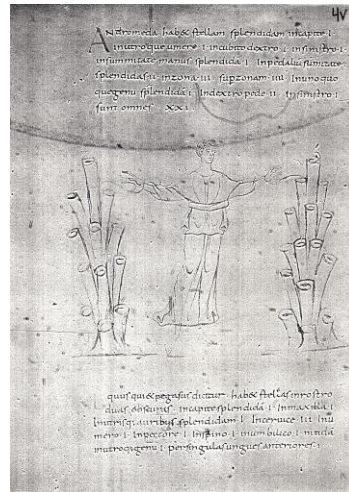 4v
Andromeda habet stellam splendidam incapite·I·
inutroque umero·I· incubito dextro·I· insinistro·I·
insummitate manus splendida·I· Inpedaliusumitate
splendidas·II·inzona·III· supzonam·IIII· Inuno quo
que genu splendida·I· Indextro pede·II· Insinistro·I·
sunt omnes XXI·
quus qui & pegasus dicitur· hab& stellas inrostro
duas obscuras· incapite splendida·I· Inmaxilla·I·
Inutrisq auribus splendidam·I· Incervice·III· Inu
mero·I· inpectore·I· Inspino·I· inumbilico·I· nitida
inutroq genu·I· persingulas ungues anteriores·I·